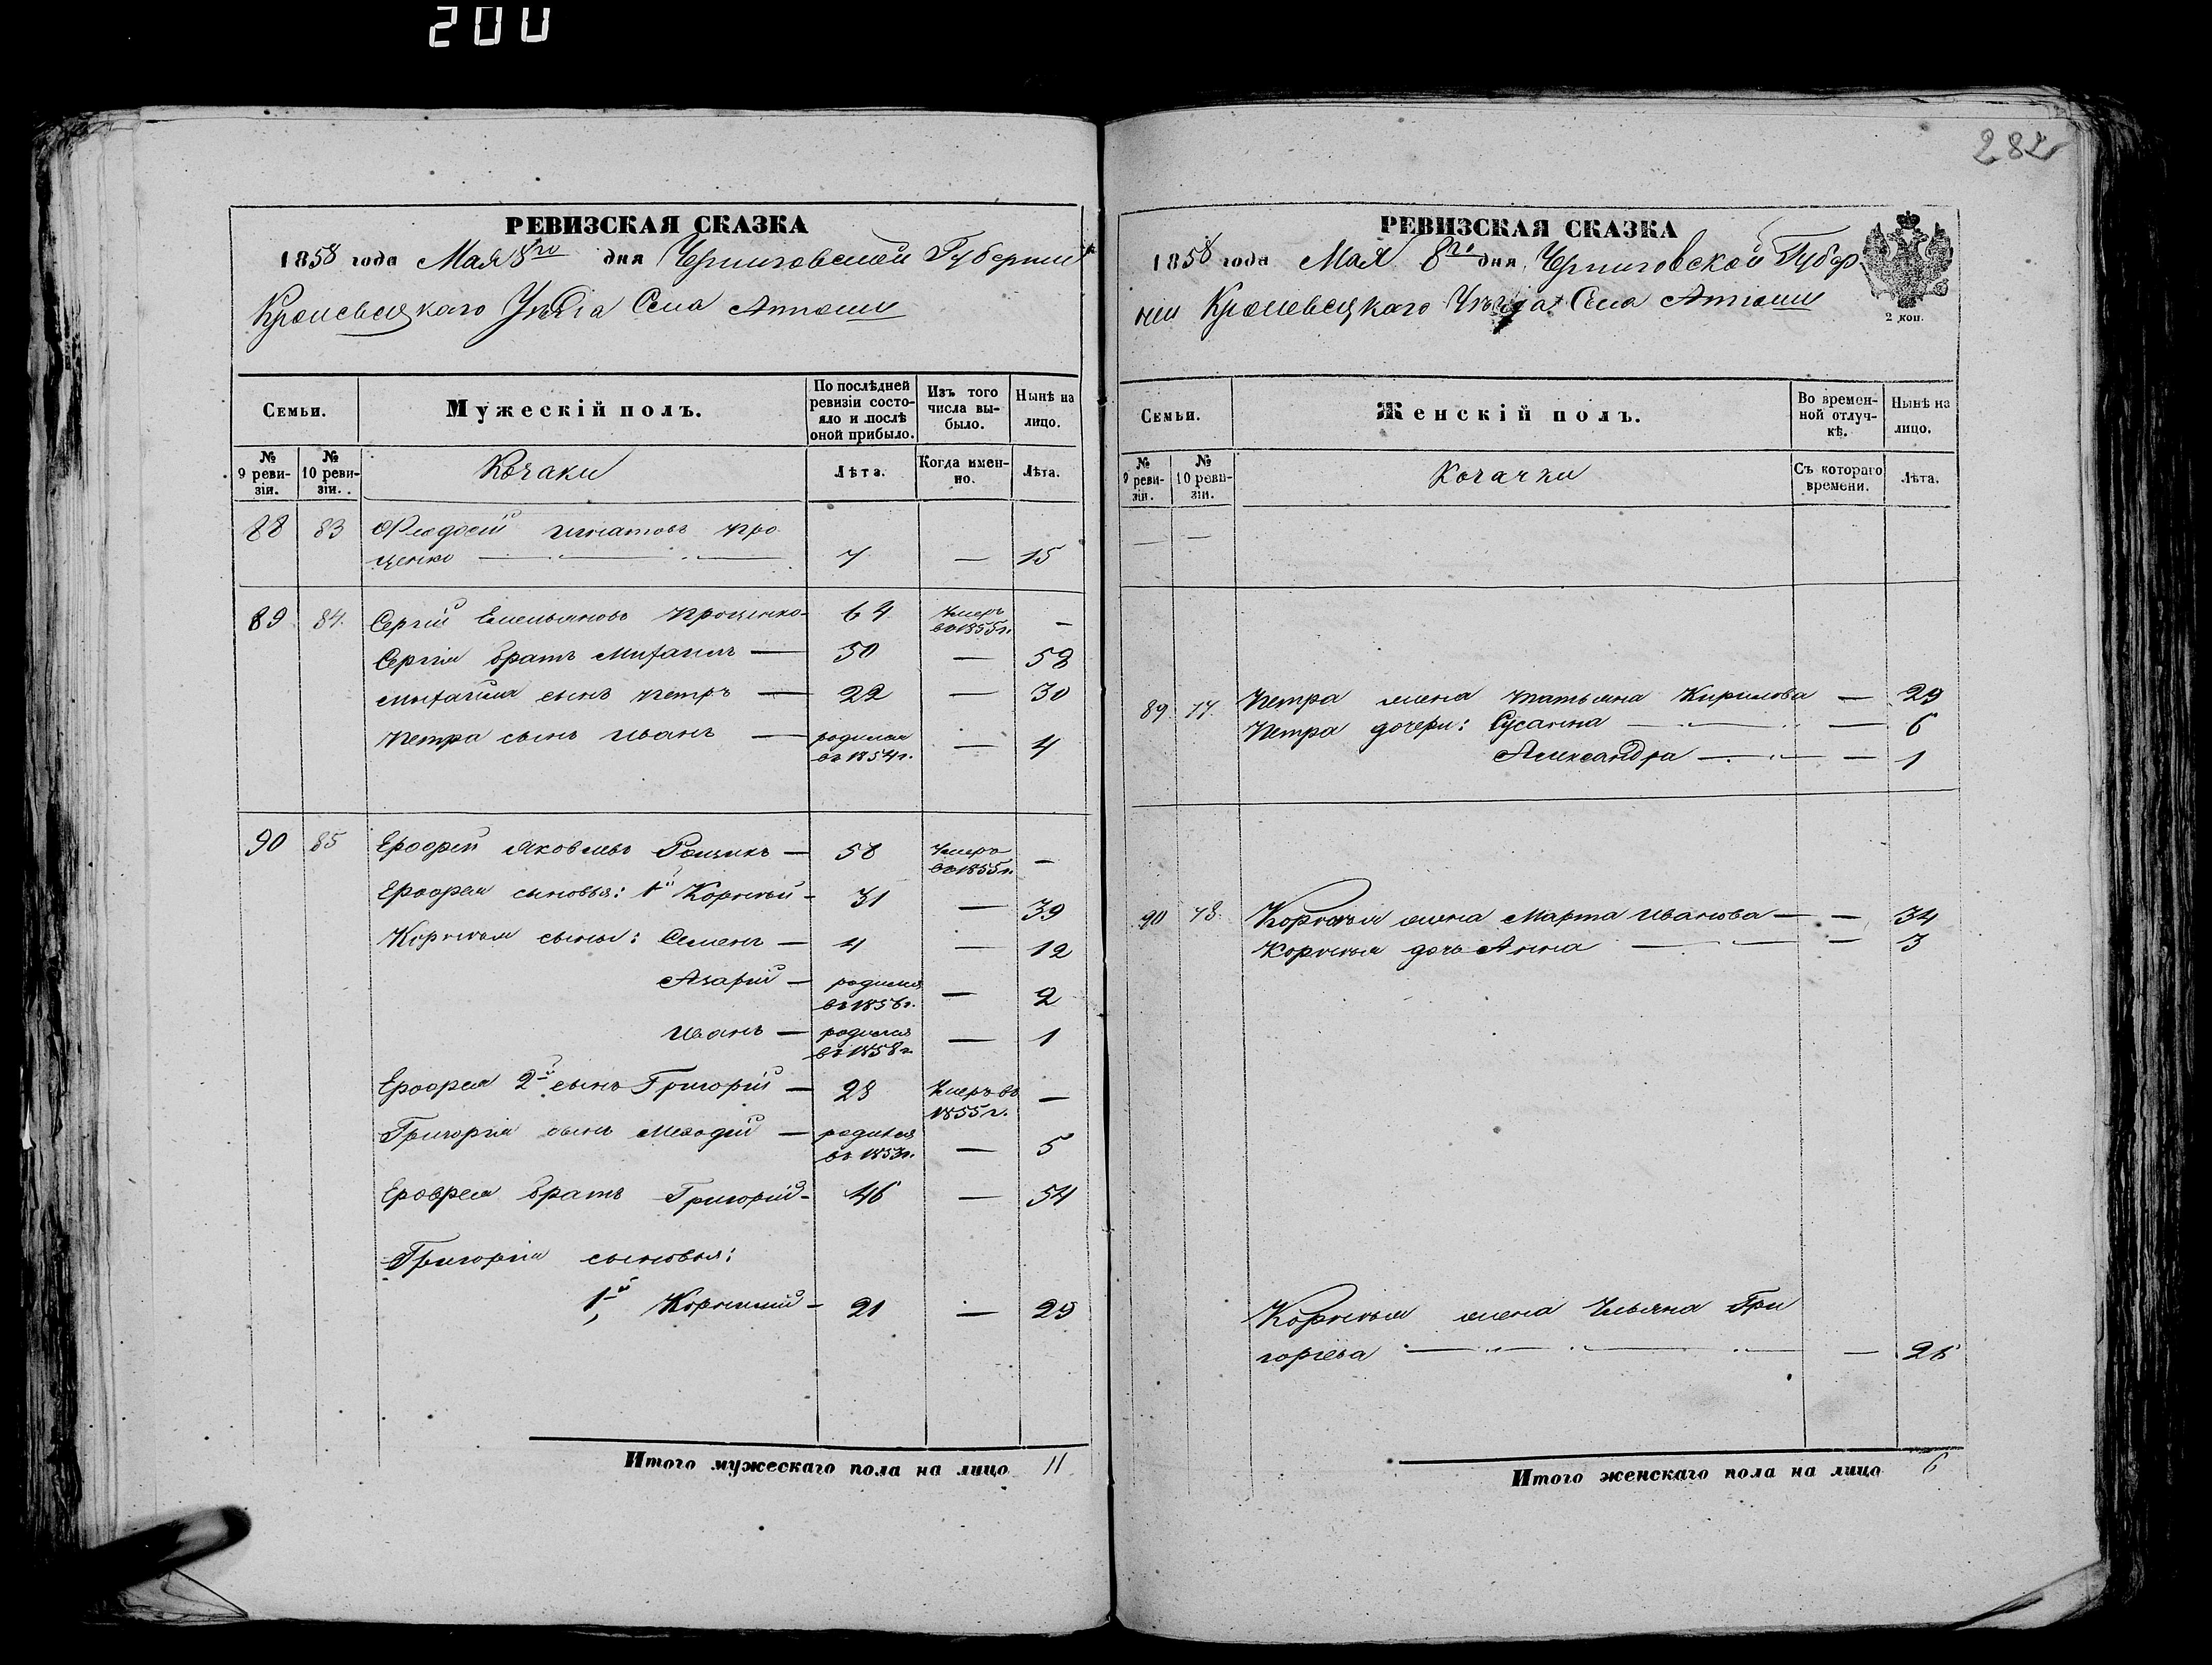 200
282
РЕВИЗСКАЯ СКАЗКА
1858 года Мая 8го дня Черниговской Губерніи
Кролевецкаго Уѣзда Села
Семьи.
Мужескій полъ.
По послѣдней ревизіи состояло и послѣ оной прибыло.
Изъ того числа выбыло.
Нынѣ на лицо.
№ 9 ревизіи.
№ 10 ревизіи.
Козаки
Лѣта.
Когда именно.
Лѣта.
88 83 Феодосій Игнатовъ Про
ценко 7 — 15
89 84 Сергій Емельяновъ Проценко 64 Умеръ въ 1855 г. —
Сергія братъ Михаилъ — 50 — 58
Михаила сынъ Петръ — 22 — 30
Петра сынъ Иванъ — родился въ 1854 г. — 4
90 85 Ерофей Яковлевъ — 58 Умеръ въ 1855 г. —
Ерофея сыновья: 1й Корнѣй — 31 — 39
Корнѣя сыны: Семенъ — 4 — 12
Азарій — родился въ 1856 г. — 2
Иванъ — родился въ 1858 г. — 1
Ерофея 2й сынъ Григорій — 28 Умеръ въ 1855 г. —
Григорія сынъ Мефодій — родился въ 1853 г. — 5
Ерофея братъ Григорій — 46 — 54
Григорія сыновья:
1й Корнилий — 21 — 29
Итого мужескаго пола на лицо 11
РЕВИЗСКАЯ СКАЗКА
1858 года Мая 8го дня Черниговской Губер
ніи Кролевецкаго Уѣзда Села
2 коп.
Семьи.
Женскій полъ.
Во временной отлучкѣ.
Нынѣ на лицо.
№ 9 ревизіи.
№ 10 ревизіи.
Козачки
Съ котораго времени.
Лѣта.
— —
89 77. Петра жена Татьяна Кирилова — 29
Петра дочери: Сусанна — 6
Александра — 1
90 78. Корнѣя жена Марта Иванова — — 34
Корнѣя дочь Анна — 3
Корнѣя жена Ульяна Гри
горіева — 26
Итого женскаго пола на лицо 6